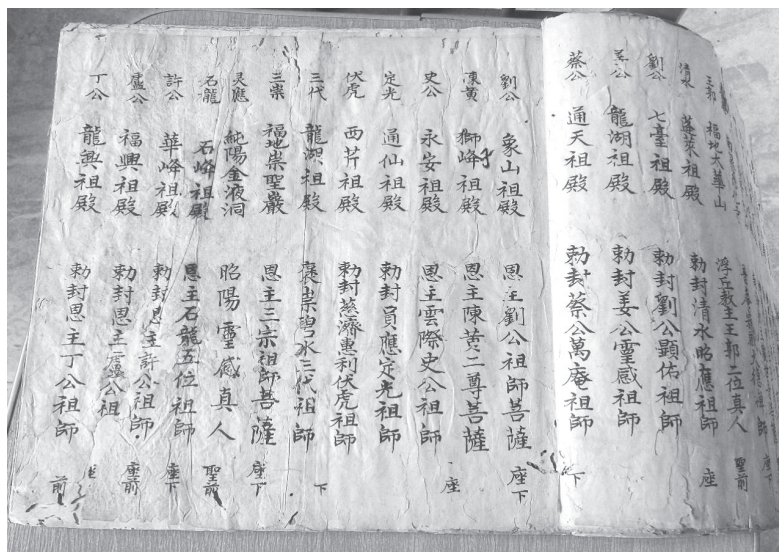 王郭 福地太華山 浮丘教主王郭二位真人 聖前
清水 蓬萊祖殿 勅封清水昭應祖師 座
劉公 七臺祖殿 勅封劉公顯佑祖師
姜公 龍湖祖殿 勅封姜公靈感祖師
蔡公 通天祖殿 勅封蔡公萬庵祖師 下
劉公 象山祖殿 恩主劉公祖師菩薩 座下
陳黃 獅峰祖殿 恩主陳黃二尊菩薩
史公 永安祖殿 恩主雲際史公祖師 座
定光 通仙祖殿 勅封員應定光祖師
伏虎 西芹祖殿 勅封慈濟惠利伏虎祖師
三代 龍湖祖殿 褒崇碧水三代祖師 下
三崇 福地崇聖巖 恩主三宗祖師菩薩 座下
灵應 純陽金液洞 昭陽靈感真人 聖前
石龍 石峰祖殿 恩主石龍五位祖師
許公 華峰祖殿 勅封恩主許公祖師 座下
盧公 福興祖殿 勅封恩主盧公祖 座前
丁公 龍興祖殿 勅封恩主丁公祖師 前